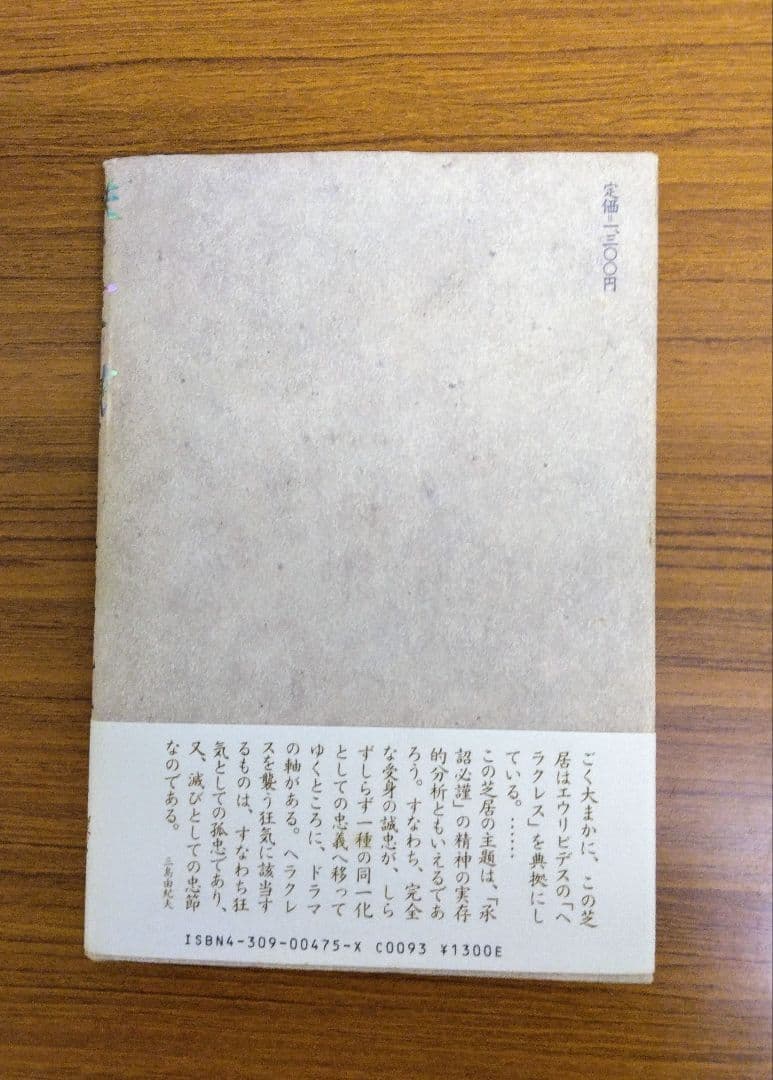 定価=一、三〇〇円
ごく大まかに、この芝
居はエウリピデスの「ヘ
ラクレス」を典拠にし
ている。……
この芝居の主題は、「承
詔必謹」の精神の実存
的分析ともいえるであ
ろう。すなわち、完全
な受身の誠忠が、しら
ずしらず一種の同一化
としての忠義へ移って
ゆくところに、ドラマ
の軸がある。ヘラクレ
スを襲う狂気に該当す
るものは、すなわち狂
気としての孤忠であり、
又、滅びとしての忠節
なのである。
三島由紀夫
ISBN4-309-00475-X C0093 ¥1300E